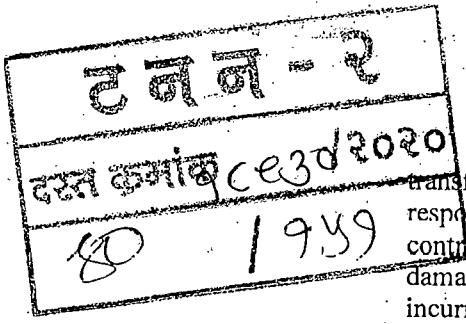 ट न न - २
दस्त क्रमांक २०२०
४० / १५१
transf
respo
contr
dama
incurr